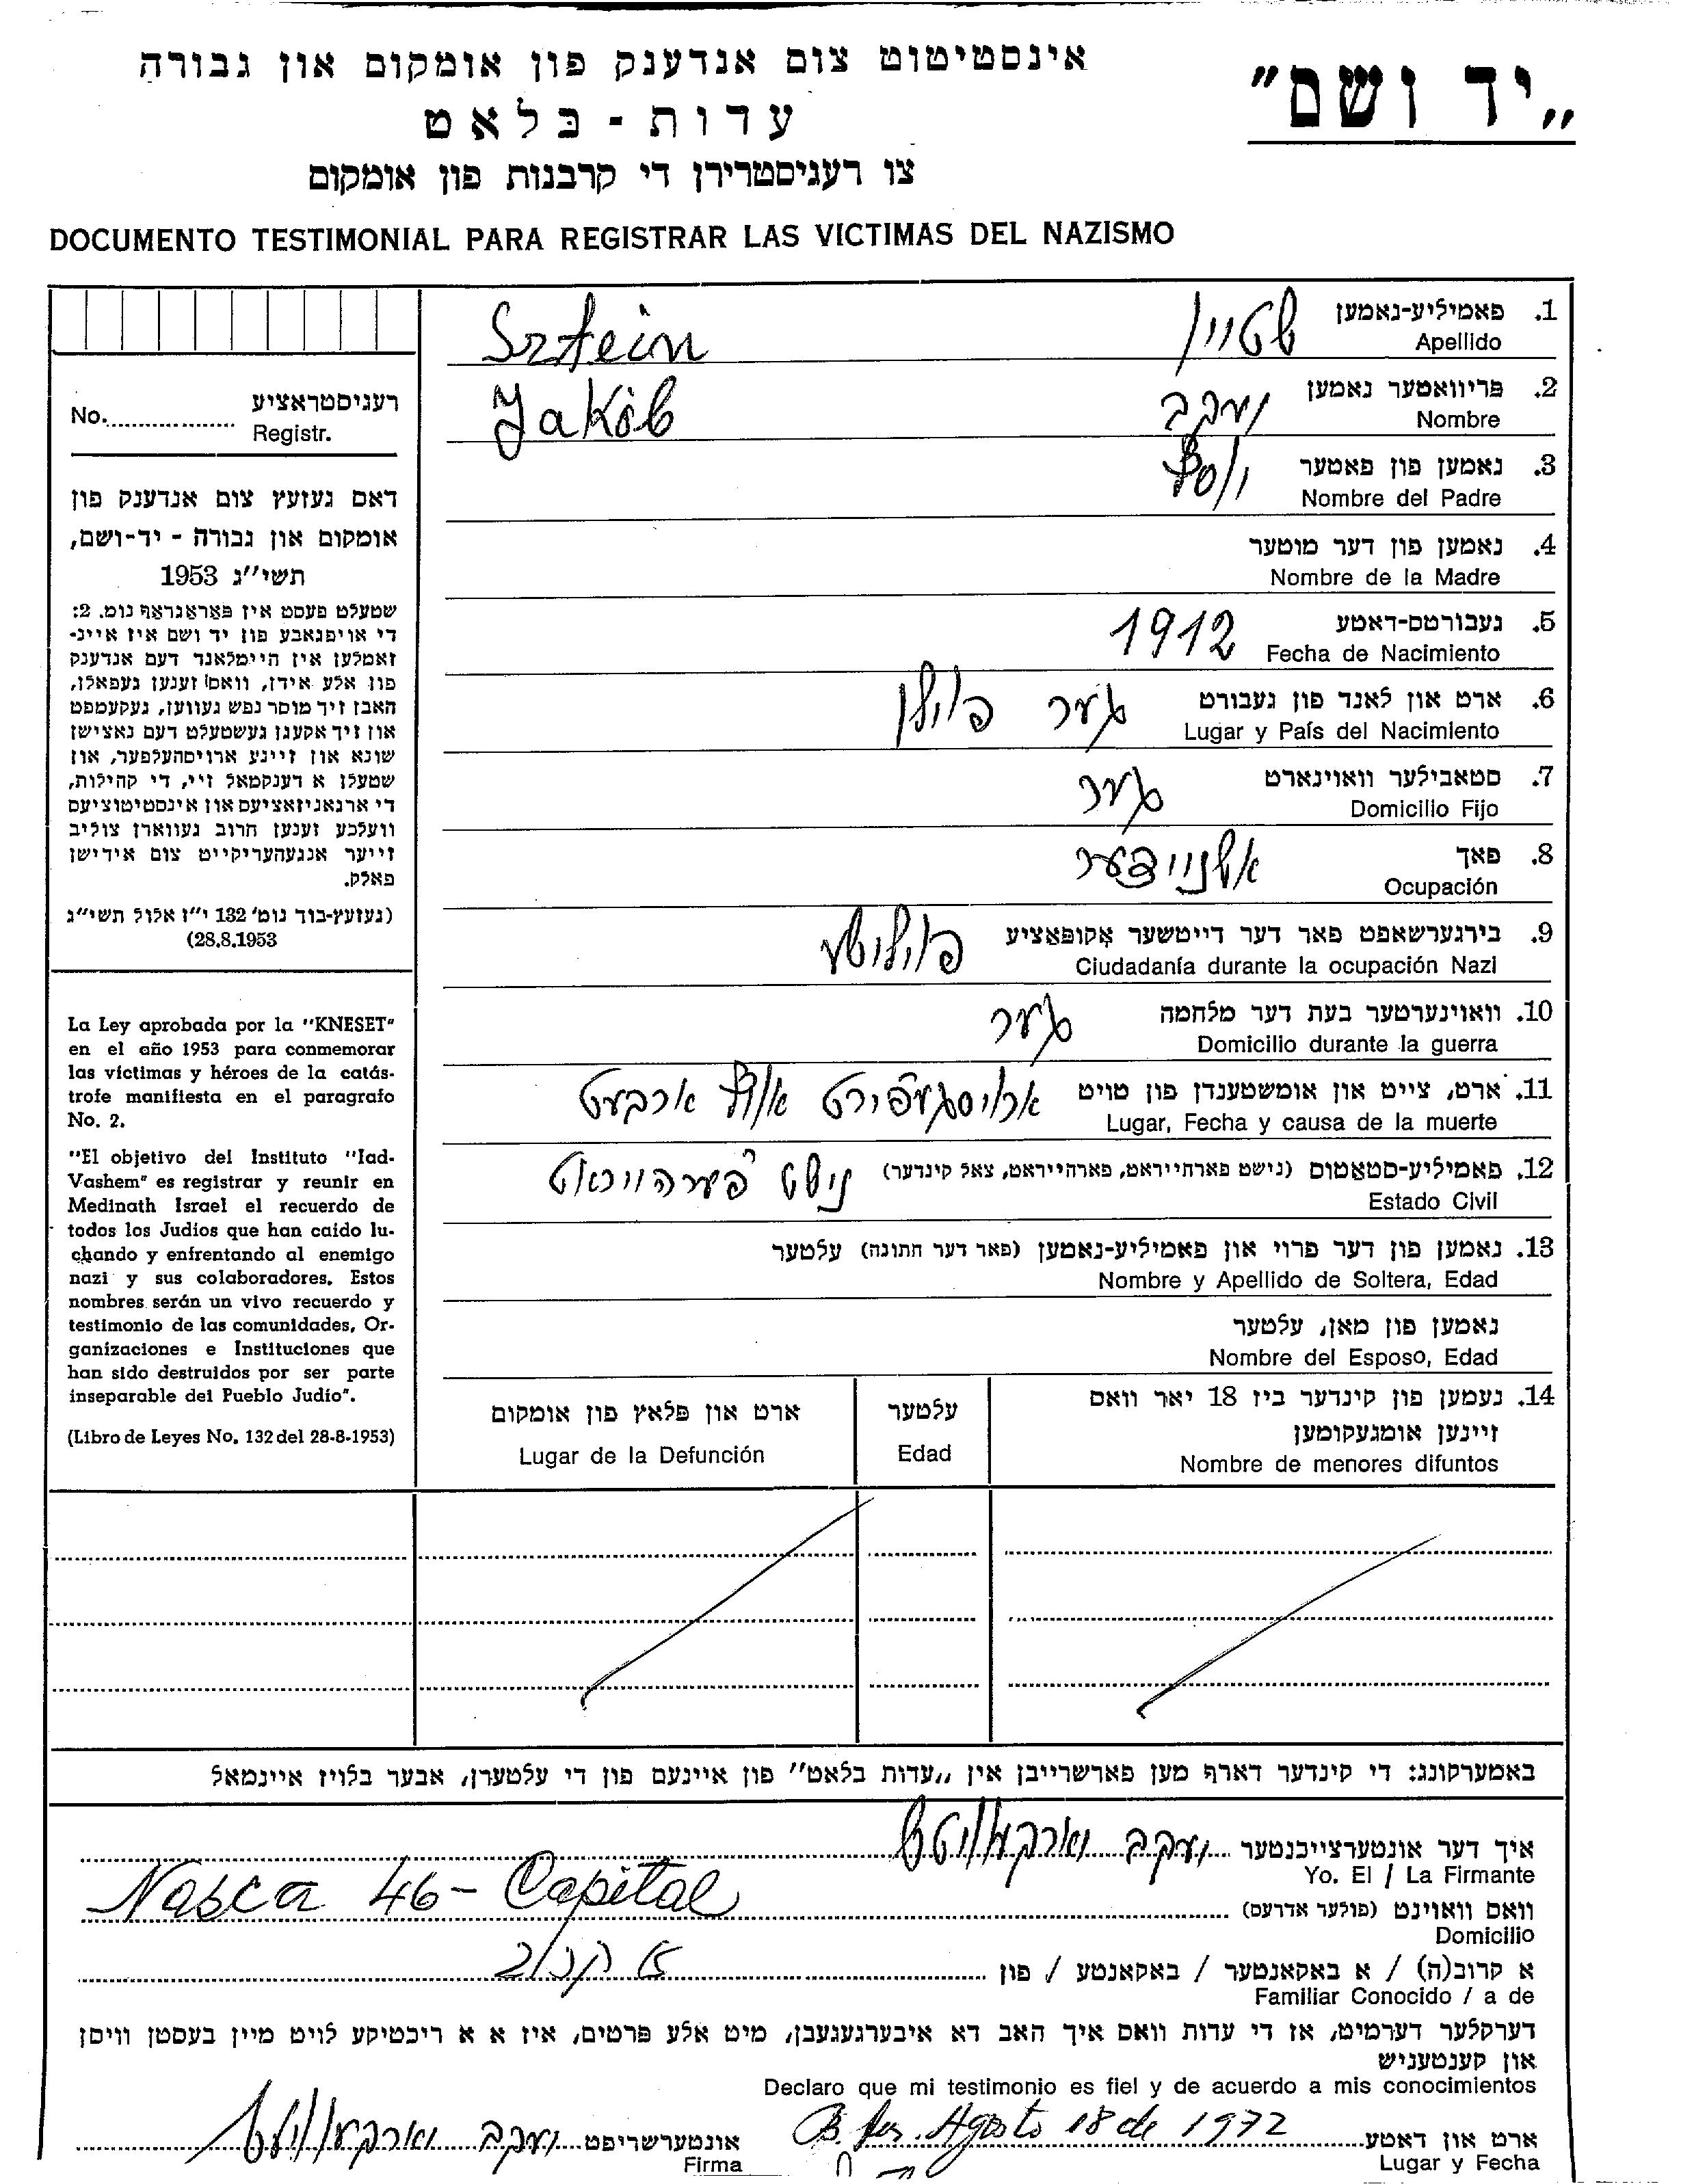 „יד ושם"
אינסטיטוט צום אנדענק פון אומקום און גבורה
עדות - בלאט
צו רעגיסטרירן די קרבנות פון אומקום
DOCUMENTO TESTIMONIAL PARA REGISTRAR LAS VICTIMAS DEL NAZISMO
רעגיסטראציע
No. Registr.
דאס געזעץ צום אנדענק פון
אומקום און גבורה - יד-ושם,
תשי"ג 1953
שטעלט פעסט אין פאראגראף נומ. 2:
די אויפגאבע פון יד ושם איז איינ-
זאמלען אין היימלאנד דעם אנדענק
פון אלע אידן, וואס זענען געפאלן,
האבן זיך מוסר נפש געווען, געקעמפט
און זיך אקעגן געשטעלט דעם נאצישן
שונא און זיינע ארויסהעלפער, און
שטעלן א דענקמאל זיי, די קהילות,
די ארגאניזאציעס און אינסטיטוציעס
וועלכע זענען חרוב געווארן צוליב
זייער אנגעהעריקייט צום אידישן
פאלק.
(געזעץ-בוך נומ' 132 י"ז אלול תשי"ג
28.8.1953)
La Ley aprobada por la "KNESET"
en el año 1953 para conmemorar
las víctimas y héroes de la catás-
trofe manifiesta en el paragrafo
No. 2.
"El objetivo del Instituto "Iad-
Vashem" es registrar y reunir en
Medinath Israel el recuerdo de
todos los Judíos que han caído lu-
chando y enfrentando al enemigo
nazi y sus colaboradores. Estos
nombres serán un vivo recuerdo y
testimonio de las comunidades, Or-
ganizaciones e Instituciones que
han sido destruidos por ser parte
inseparable del Pueblo Judío".
(Libro de Leyes No. 132 del 28-8-1953)
1. פאמיליע-נאמען שטיין Srtein
Apellido
2. פריוואטער נאמען יעקב Jakób
Nombre
3. נאמען פון פאטער
Nombre del Padre
4. נאמען פון דער מוטער
Nombre de la Madre
5. געבורטס-דאטע 1912
Fecha de Nacimiento
6. ארט און לאנד פון געבורט גער פוילן
Lugar y País del Nacimiento
7. סטאבילער וואוינארט גער
Domicilio Fijo
8. פאך אשניידער
Ocupación
9. בירגערשאפט פאר דער דייטשער אקופאציע פוילישע
Ciudadanía durante la ocupación Nazi
10. וואוינערטער בעת דער מלחמה גער
Domicilio durante la guerra
11. ארט, צייט און אומשטענדן פון טויט ארויסגעפירט אויף ארבעט
Lugar, Fecha y causa de la muerte
12. פאמיליע-סטאטוס (נישט פארהייראט, פארהייראט, צאל קינדער) נישט
Estado Civil
13. נאמען פון דער פרוי און פאמיליע-נאמען (פאר דער חתונה) עלטער
Nombre y Apellido de Soltera, Edad
נאמען פון מאן, עלטער
Nombre del Esposo, Edad
14. נעמען פון קינדער ביז 18 יאר וואס
זיינען אומגעקומען
Nombre de menores difuntos
עלטער
Edad
ארט און פלאץ פון אומקום
Lugar de la Defunción
באמערקונג: די קינדער דארף מען פארשרייבן אין „עדות בלאט" פון איינעם פון די עלטערן, אבער בלויז איינמאל
איך דער אונטערצייכנטער יעקב
Yo. El / La Firmante
וואס וואוינט (פולער אדרעס) Nasca 46 - Capital
Domicilio
א קרוב(ה) / א באקאנטער / באקאנטע / פון א קרוב
Familiar Conocido / a de
דערקלער דערמיט, אז די עדות וואס איך האב דא איבערגעגעבן, מיט אלע פרטים, איז א א ריכטיקע לויט מיין בעסטן וויסן
און קענטעניש
Declaro que mi testimonio es fiel y de acuerdo a mis conocimientos
ארט און דאטע Agosto 18 de 1972 אונטערשריפט יעקב
Lugar y Fecha Firma